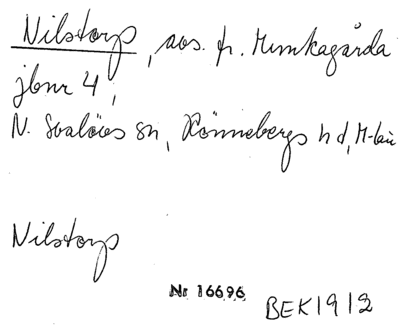 Nilstorp, avs. fr. Munkagårda
jbnr 4,
N. Svalövs sn, Rönnebergs hd, M-län
Nilstorp
Nr 16696
BEK1912